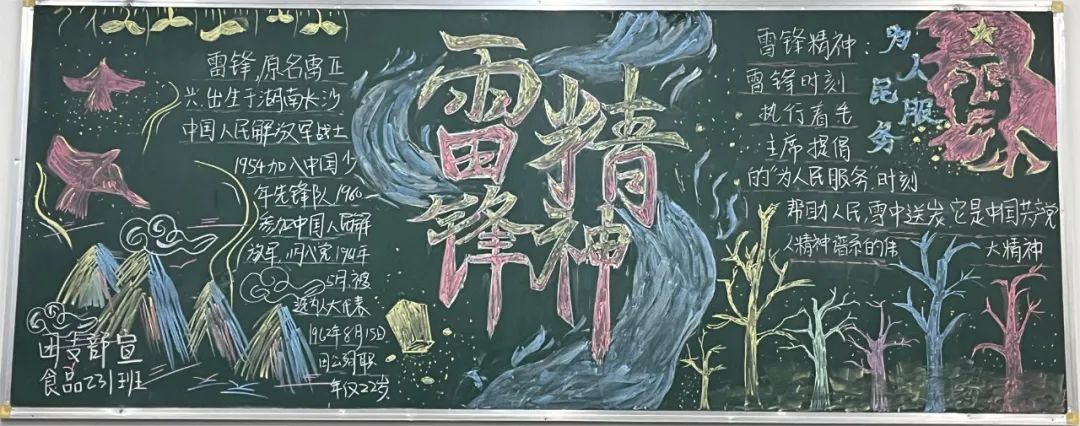 雷锋,原名雷正
兴,出生于湖南长沙
中国人民解放军战士
1954加入中国少
年先锋队,1960
参加中国人民解
放军,
5月,被
选为人大代表
1962年8月15日
因公殉职
年仅22岁
食品231班
雷锋
精神
雷锋精神:
雷锋时刻
执行着毛
主席提倡
的"为人民服务,时刻
帮助人民,雪中送炭,它是中国共产党
人精神谱系的伟大精神
为人民服务